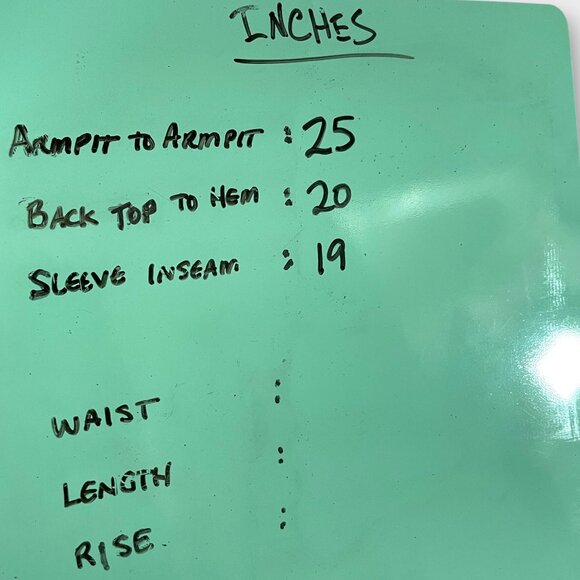 INCHES
ARMPIT TO ARMPIT : 25
BACK TOP TO HEM : 20
SLEEVE INSEAM : 19
WAIST :
LENGTH :
RISE :